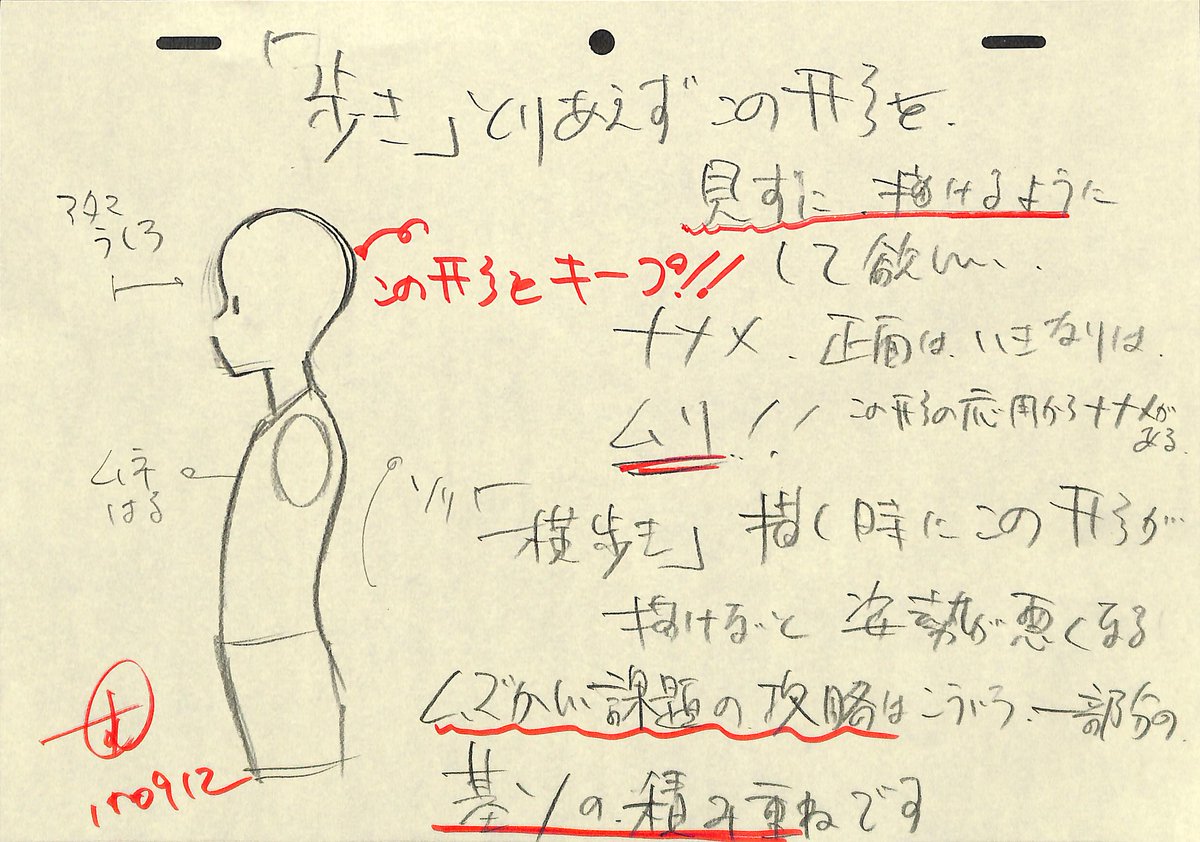 「歩き」とりあえずこの形を.
見ずに描けるように
して欲しい..
ナナメ、正面は、いきなりは.
ムリ..!!
この形の応用からナナメが
ある.
「横歩き」描く時にこの形が
描けないと姿勢が悪くなる
ムズかしい課題の攻略はこういう、一部分の
基ソの積み重ねです
アタマ
うしろ
この形をキープ!!
ムネ
はる
ソリ
150912